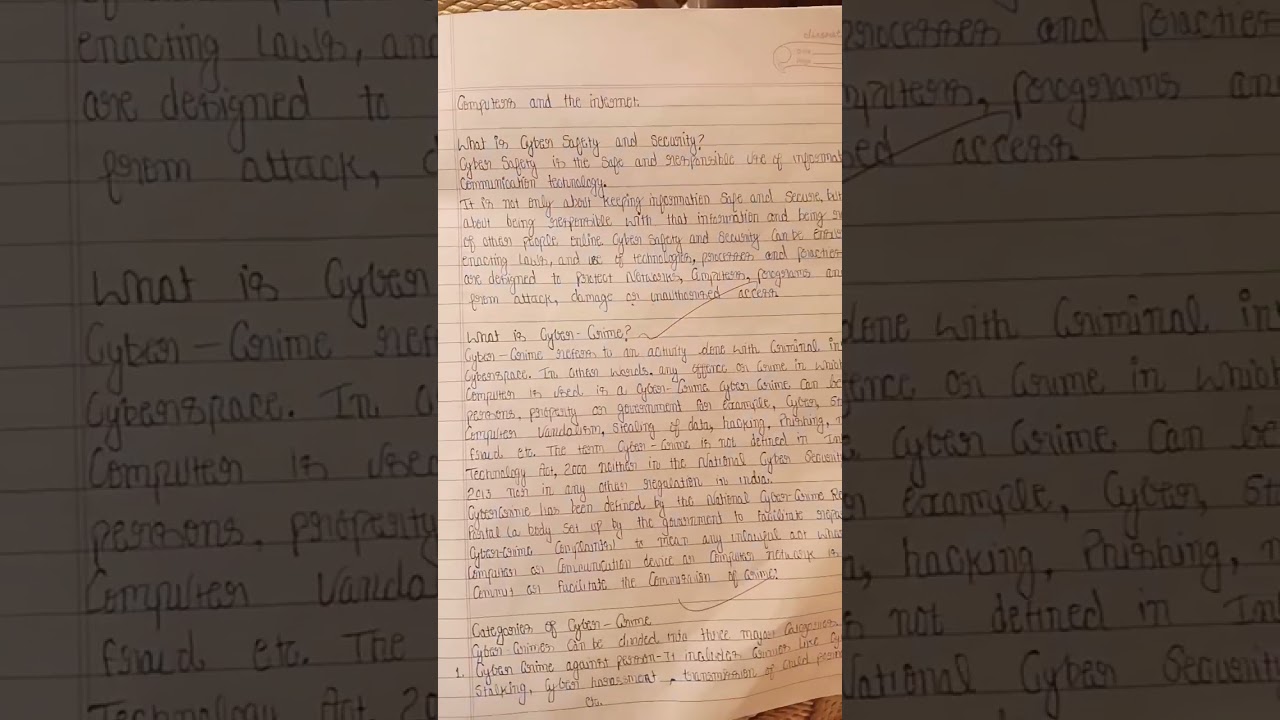 Computers and the internet.
What is Cyber Safety and Security?
Cyber Safety is the safe and responsible use of informat
Communication technology.
It is not only about keeping information safe and secure, but
about being responsible with that information and being
of other people online. Cyber safety and security can be
enacting laws, and use of technologies, processes and practices
are designed to protect Networks, Computers, programs and
from attack, damage or unauthorised access
What is Cyber-Crime?
Cyber-Crime refers to an activity done with Criminal in
Cyberspace. In other words, any offence or crime in which
Computer is used is a Cyber-Crime Cyber Crime can be
persons, property or government for example, Cyber, St
Computer Vandalism, stealing of data, hacking, Phishing,
fraud etc. The term Cyber Crime is not defined in In
Technology Act, 2000 neither in the National Cyber Securit
2013 nor in any other regulation in India.
Cyber Crime has been defined by the National Cyber-Crime Re
Portal (a body set up by the government to facilitate
Cyber-crime Complaints) to mean any unlawful act
Computer or Communication device or Computer network is
Commit or facilitate the Commission of Crime?
Categories of Cyber-Crime
Cyber-Crimes can be divided into three major categories
1. Cyber Crime against person-It includes crimes like Cy
Stalking, Cyber harassment, transmission of child
etc.